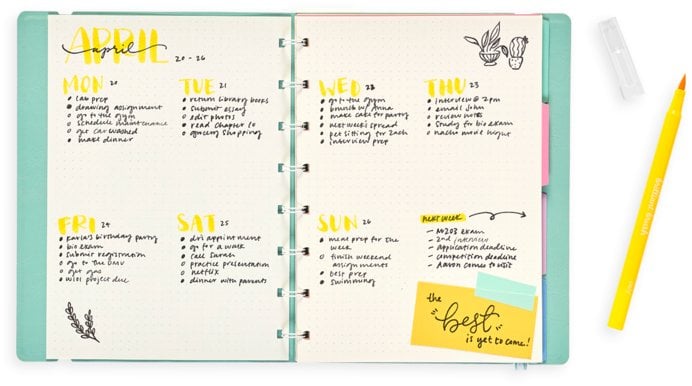 APRIL
april
20 - 26
MON 20
lab prep
drawing assignment
go to the gym
schedule maintenance
get car washed
make dinner
TUE 21
return library books
submit essay
edit photos
read chapter 10
grocery shopping
WED 22
go to the gym
brunch w/ Anna
make cake for party
next week's spread
pet sitting for Zach
interview prep
THU 23
interview @ 2pm
email John
review notes
study for bio exam
nacho movie night
FRI 24
Karla's birthday party
bio exam
submit registration
go to the DMV
get gas
project due
SAT 25
appointment
go for a walk
call Sarah
practice presentation
netflix
dinner with parents
SUN 26
meal prep for the
week
finish weekend
assignments
prep
swimming
next week
exam
2nd interview
application deadline
competition deadline
Aaron comes to visit
the
best
is yet to come!